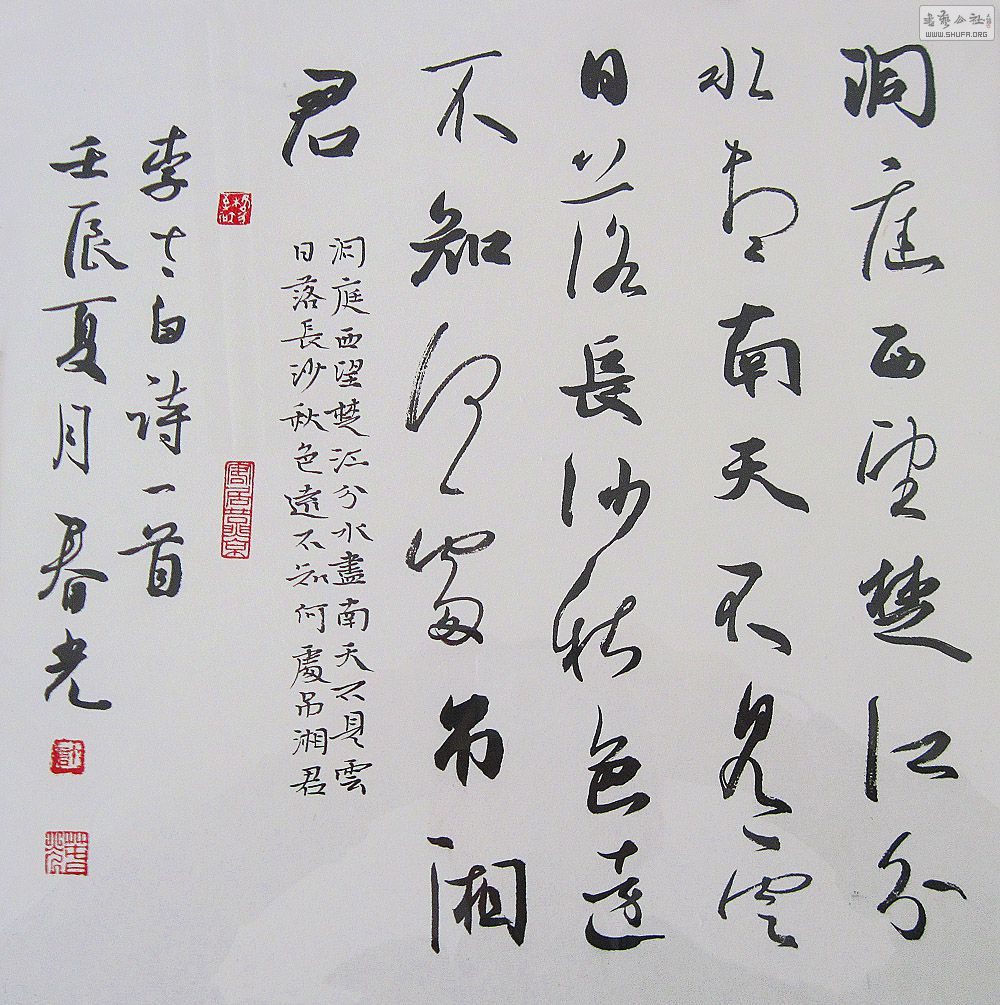 洞庭西望楚江分
水盡南天不見雲
日落長沙秋色遠
不知何處吊湘
君
洞庭西望楚江分水盡南天不見雲
日落長沙秋色遠不知何處吊湘君
李太白詩一首
壬辰夏月春光
书艺公社
WWW.SHUFA.ORG